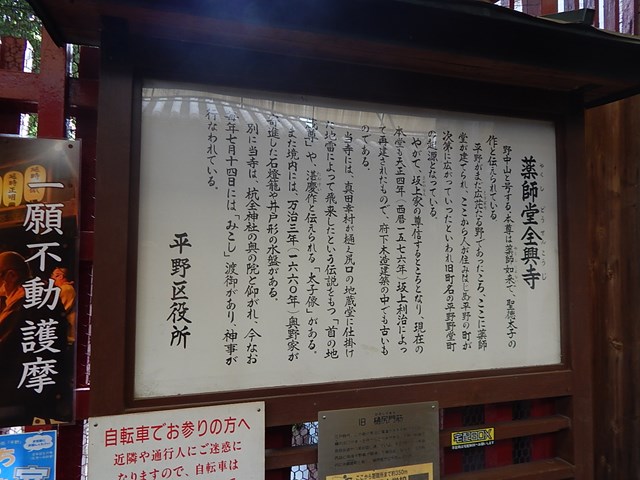 薬師堂全興寺
やくしどうぜんこうじ
野中山と号する。本尊は薬師如来で、聖徳太子の
作と伝えられている。
平野がまだ広茫たる野であったころ、ここに薬師
堂が建てられ、ここから人が住みはじめ平野の町が
次第に広がっていったといわれ旧町名の平野野堂町
の起源となっている。
やがて、坂上家の尊信するところとなり、現在の
本堂も天正四年(西暦一五七六年)坂上利治によっ
て再建されたもので、府下木造建築の中でも古いも
のである。
当寺には、真田幸村が樋ノ尻口の地蔵堂に仕掛け
た地雷によって飛来したという伝説をもつ「首の地
蔵尊」や、湛慶作と伝えられる「太子像」がある。
また境内には、万治三年(一六六〇年)奥野家が
寄進した石燈籠や井戸形の水盤がある。
別に当寺は、杭全神社の奥の院と仰がれ、今なお
毎年七月十四日には「みこし」渡御があり、神事が
行なわれている。
平野区役所
一願不動護摩
自転車でお参りの方へ
近隣や通行人にご迷惑に
なりますので、自転車は
旧
宅配BOX